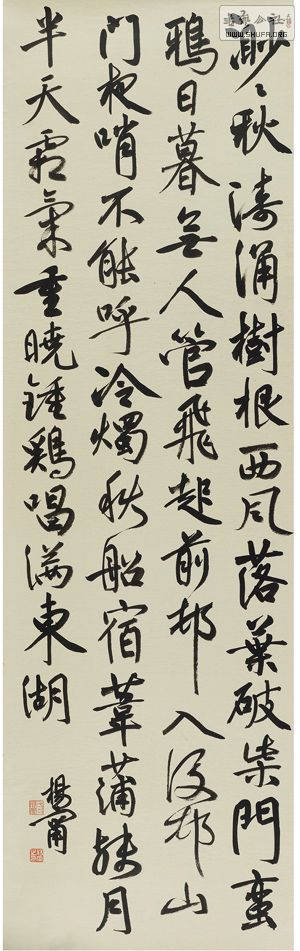 渺〻秋濤涌樹根西風落葉破柴門蠻
鴉日暮無人管飛起前邨入後邨山
門夜哨不能呼冷燭秋船宿葦蒲殘月
半天霜氣重曉鍾鷄唱滿東湖
楊
WWW.SHUFA.ORG